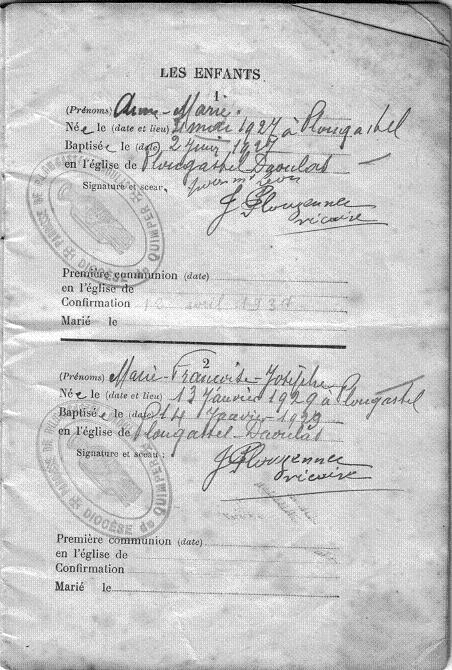 LES ENFANTS
1
(Prénoms) Anne-Marie
Née le (date et lieu) mai 1927 à Plougastel
Baptisée le (date) 2 juin 1927
en l'église de Plougastel Daoulas
Signature et sceau,
J Plouzennec
vicaire
Première communion (date)
en l'église de
Confirmation 12 avril
Marié le
2
(Prénoms) Marie-Françoise-Josèphe
Née le (date et lieu) 13 Janvier 1929 à Plougastel
Baptisée le (date) 14 Janvier 1929
en l'église de Plougastel-Daoulas
Signature et sceau :
J Plouzennec
vicaire
DIOCÈSE de QUIMPER
Première communion (date)
en l'église de
Confirmation
Marié le